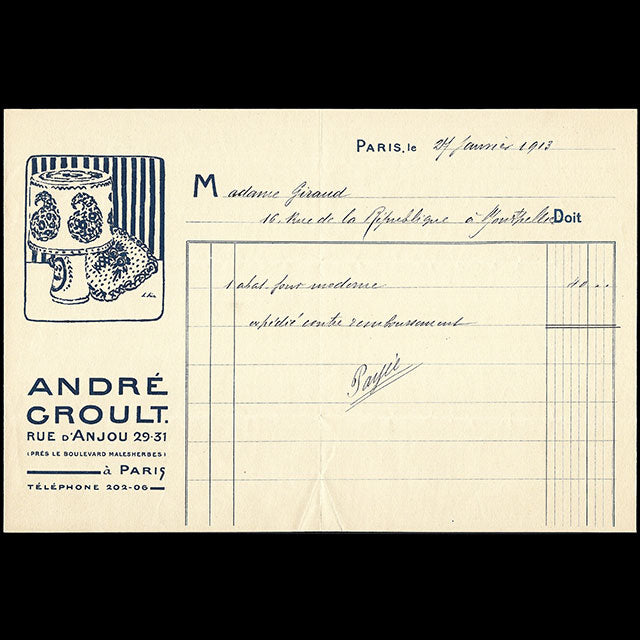 PARIS, le 27 Janvier 1913
Madame Giraud
16 Rue de la République à Montpellier Doit
1 abat-jour moderne 40 "
expédié contre remboursement
Payée
ANDRÉ
GROULT.
RUE D'ANJOU 29-31
(PRÈS LE BOULEVARD MALESHERBES)
à PARIS
TÉLÉPHONE 202-06